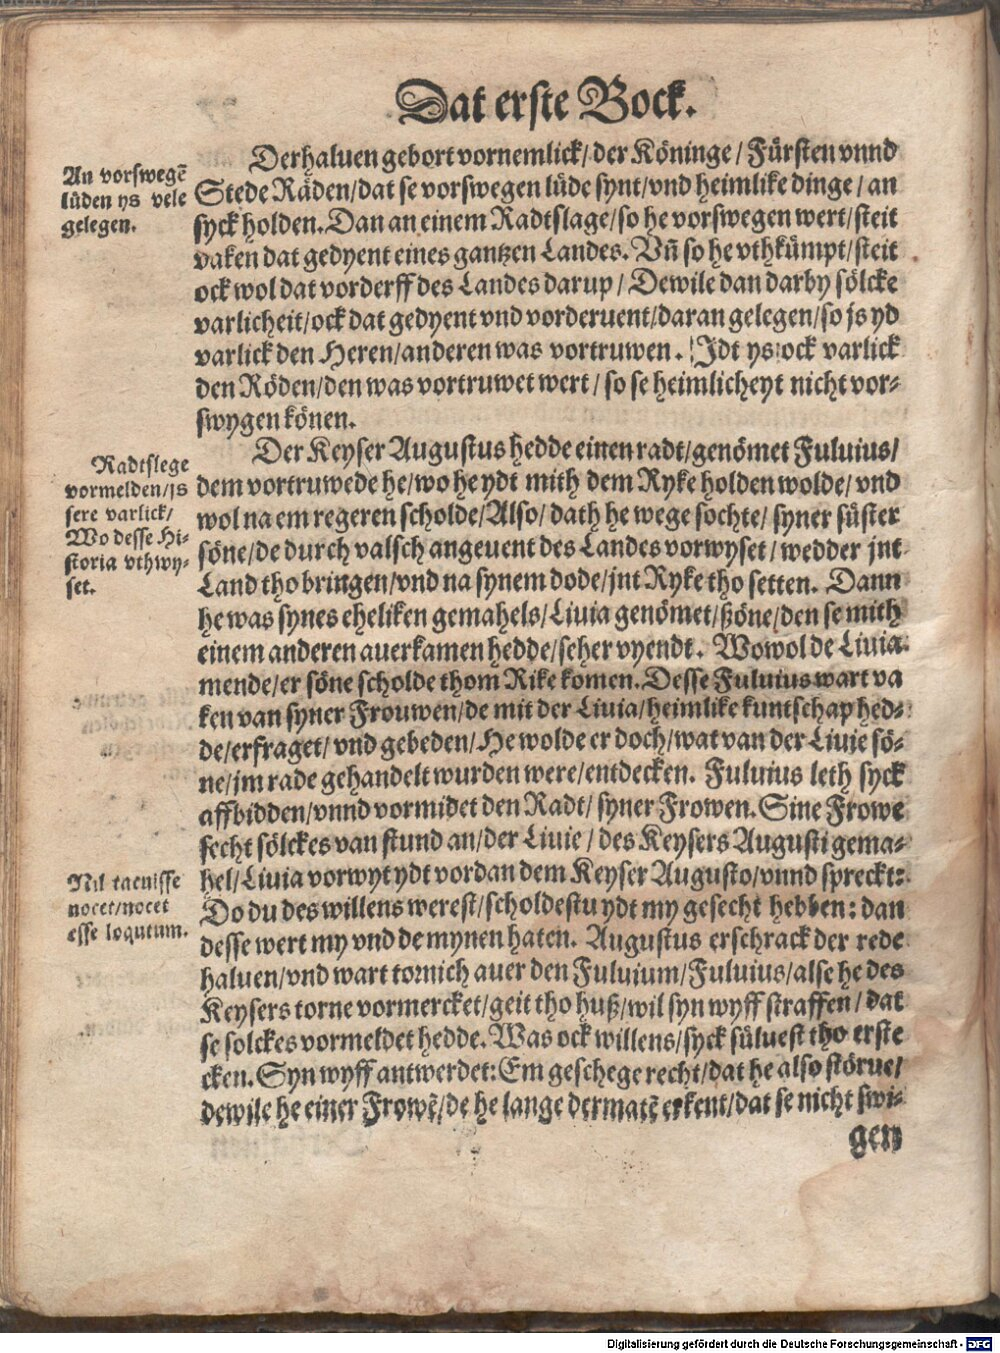 Dat erste Bock.
Derhaluen gebort vornemlick/der Köninge/Fürsten vnnd
Stede Räden/dat se vorswegen lüde synt/vnd heimlike dinge/an
syck holden. Dan an einem Radtslage/so he vorswegen wert/steit
vaken dat gedyent eines gantzen Landes. Vñ so he vthkümpt/steit
ock wol dat vorderff des Landes darup/Dewile dan darby sölcke
varlicheit/ock dat gedyent vnd vorderuent/daran gelegen/so js yd
varlick den Heren/anderen was vortruwen. Jdt ys ock varlick
den Röden/den was vortruwet wert/so se heimlicheyt nicht vor-
swygen könen.
An vorswegē
lüden ys vele
gelegen.
Der Keyser Augustus hedde einen radt/genömet Fuluius/
dem vortruwede he/wo he ydt mith dem Ryke holden wolde/vnd
wol na em regeren scholde/Also/dath he wege sochte/syner süster
söne/de durch valsch angeuent des Landes vorwyset/wedder jnt
Land tho bringen/vnd na synem dode/jnt Ryke tho setten. Dann
he was synes eheliken gemahels/Liuia genömet/ßöne/den se mith
einem anderen auerkamen hedde/seher vyendt. Wowol de Liuia
mende/er söne scholde thom Rike komen. Desse Fuluius wart va
ken van syner Frouwen/de mit der Liuia/heimlike kuntschap hed-
de/erfraget/vnd gebeden/He wolde er doch/wat van der Liuie sö-
ne/jm rade gehandelt wurden were/entdecken. Fuluius leth syck
affbidden/vnnd vormidet den Radt/syner Frowen. Sine Frowe
secht sölckes van stund an/der Liuie/des Keysers Augusti gema-
hel/Liuia vorwyt ydt vordan dem Keyser Augusto/vnnd spreckt:
Do du des willens werest/scholdestu ydt my gesecht hebben: dan
desse wert my vnd de mynen haten. Augustus erschrack der rede
haluen/vnd wart tornich auer den Fuluium/Fuluius/alse he des
Keysers torne vormercket/geit tho huß/wil syn wyff straffen/dat
se solckes vormeldet hedde. Was ock willens/syck süluest tho erste
cken. Syn wyff antwerdet: Em geschege recht/dat he also störue/
dewile he einer Frowē/de he lange dermatē erkent/dat se nicht swi-
gen
Radtslege
vormelden/js
sere varlick/
Wo desse Hi-
storia vthwy-
set.
Nil tacuisse
nocet/nocet
esse loqutum.
Digitalisierung gefördert durch die Deutsche Forschungsgemeinschaft - DFG